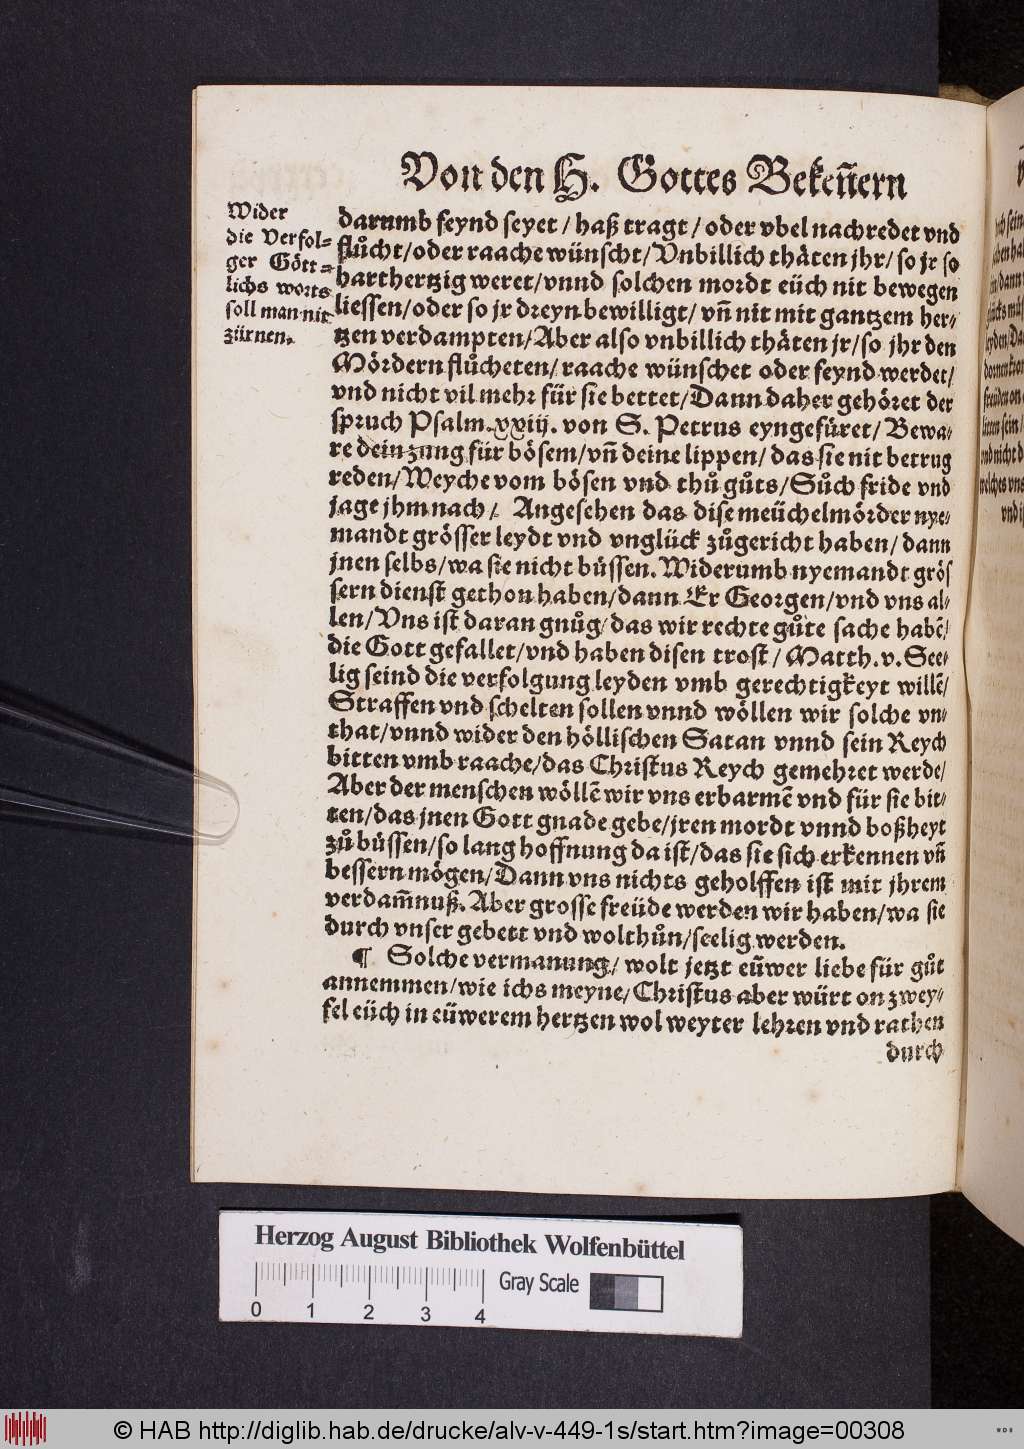 Von den H. Gottes Bekeñern
Wider
die Verfol=
ger Gött=
lichs worts
soll man nit
zürnen.
darumb feynd seyet / haß tragt / oder vbel nachredet vnd
flůcht/oder raache wünscht/Vnbillich thäten jhr/ so jr so
harthertzig weret/vnnd solchen mordt eüch nit bewegen
liessen/oder so jr dreyn bewilligt/ vñ nit mit gantzem her/
tzen verdampten/Aber also vnbillich thäten jr/so jhr den
Mördern flůcheten/ raache wünschet oder feynd werdet/
vnd nicht vil mehr für sie bettet/Dann daher gehöret der
spruch Psalm.xxiij. von S. Petrus eyngefüret/ Bewa/
re dein zung für bösem/vñ deine lippen/ das sie nit betrug
reden/Weyche vom bösen vnd thů gůts/Sůch fride vnd
jage jhm nach/ Angesehen das dise meüchelmörder nye/
mandt grösser leydt vnd vnglück zůgericht haben/ dann
jnen selbs/wa sie nicht büssen. Widerumb nyemandt grös
sern dienst gethon haben/dann Er Georgen/vnd vns al/
len/Vns ist daran gnůg/das wir rechte gůte sache habē/
die Gott gefallet/vnd haben disen trost/ Matth.v. See/
lig seind die verfolgung leyden vmb gerechtigkeyt willē/
Straffen vnd schelten sollen vnnd wöllen wir solche vn/
that/vnnd wider den höllischen Satan vnnd sein Reych
bitten vmb raache/das Christus Reych gemehret werde/
Aber der menschen wöllē wir vns erbarmē vnd für sie bit/
ten/das jnen Gott gnade gebe/jren mordt vnnd boßheyt
zů büssen/so lang hoffnung da ist/das sie sich erkennen vñ
bessern mögen/Dann vns nichts geholffen ist mit jhrem
verdam̃nuß. Aber grosse freüde werden wir haben/wa sie
durch vnser gebett vnd wolthůn/seelig werden.
¶ Solche vermanung/ wolt jetzt eüwer liebe für gůt
annemmen/wie ichs meyne/Christus aber würt on zwey/
fel eüch in eüwerem hertzen wol weyter lehren vnd rathen
durch
Herzog August Bibliothek Wolfenbüttel
0 1 2 3 4
Gray Scale
© HAB http://diglib.hab.de/drucke/alv-v-449-1s/start.htm?image=00308